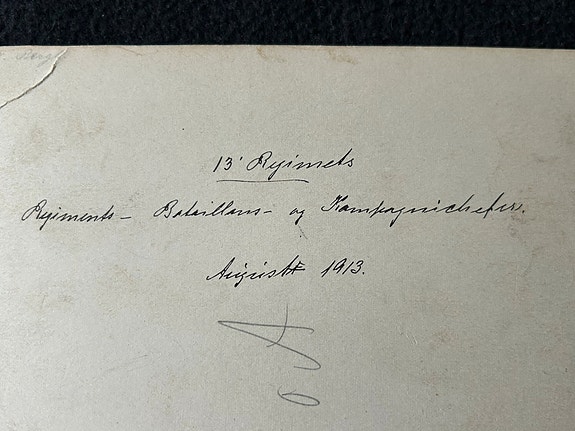 13' Regimets
Regiments- Bataillons- og Kompagnichefer.
August 1913.